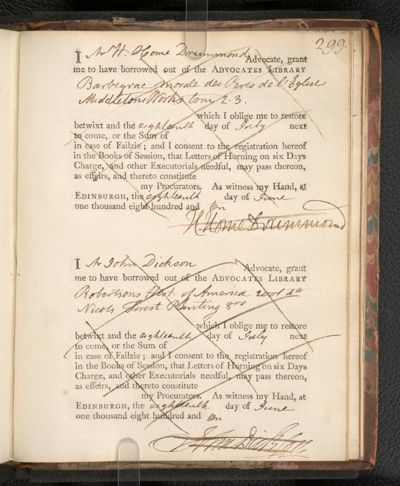 299
I Mr H. Home Drummond Advocate, grant
me to have borrowed out of the ADVOCATES LIBRARY
Barbeyrac Morale des Peres de l'Eglise
Middletons Works tom 2. 3.
which I oblige me to restore
betwixt and the eighteenth day of July next
to come, or the Sum of
in case of Failzie; and I consent to the registration hereof
in the Books of Session, that Letters of Horning on six Days
Charge, and other Executorials needful, may pass thereon,
as effeirs, and thereto constitute
my Procurators. As witness my Hand, at
EDINBURGH, the eighteenth day of June
one thousand eight hundred and ten
H Home Drummond
I Mr John Dickson Advocate, grant
me to have borrowed out of the ADVOCATES LIBRARY
Robertsons Hist. of America 2 vol 4to
Nicols Forest Planting 8vo
which I oblige me to restore
betwixt and the eighteenth day of July next
to come, or the Sum of
in case of Failzie; and I consent to the registration hereof
in the Books of Session, that Letters of Horning on six Days
Charge, and other Executorials needful, may pass thereon,
as effeirs, and thereto constitute
my Procurators. As witness my Hand, at
EDINBURGH, the eighteenth day of June
one thousand eight hundred and ten
John Dickson